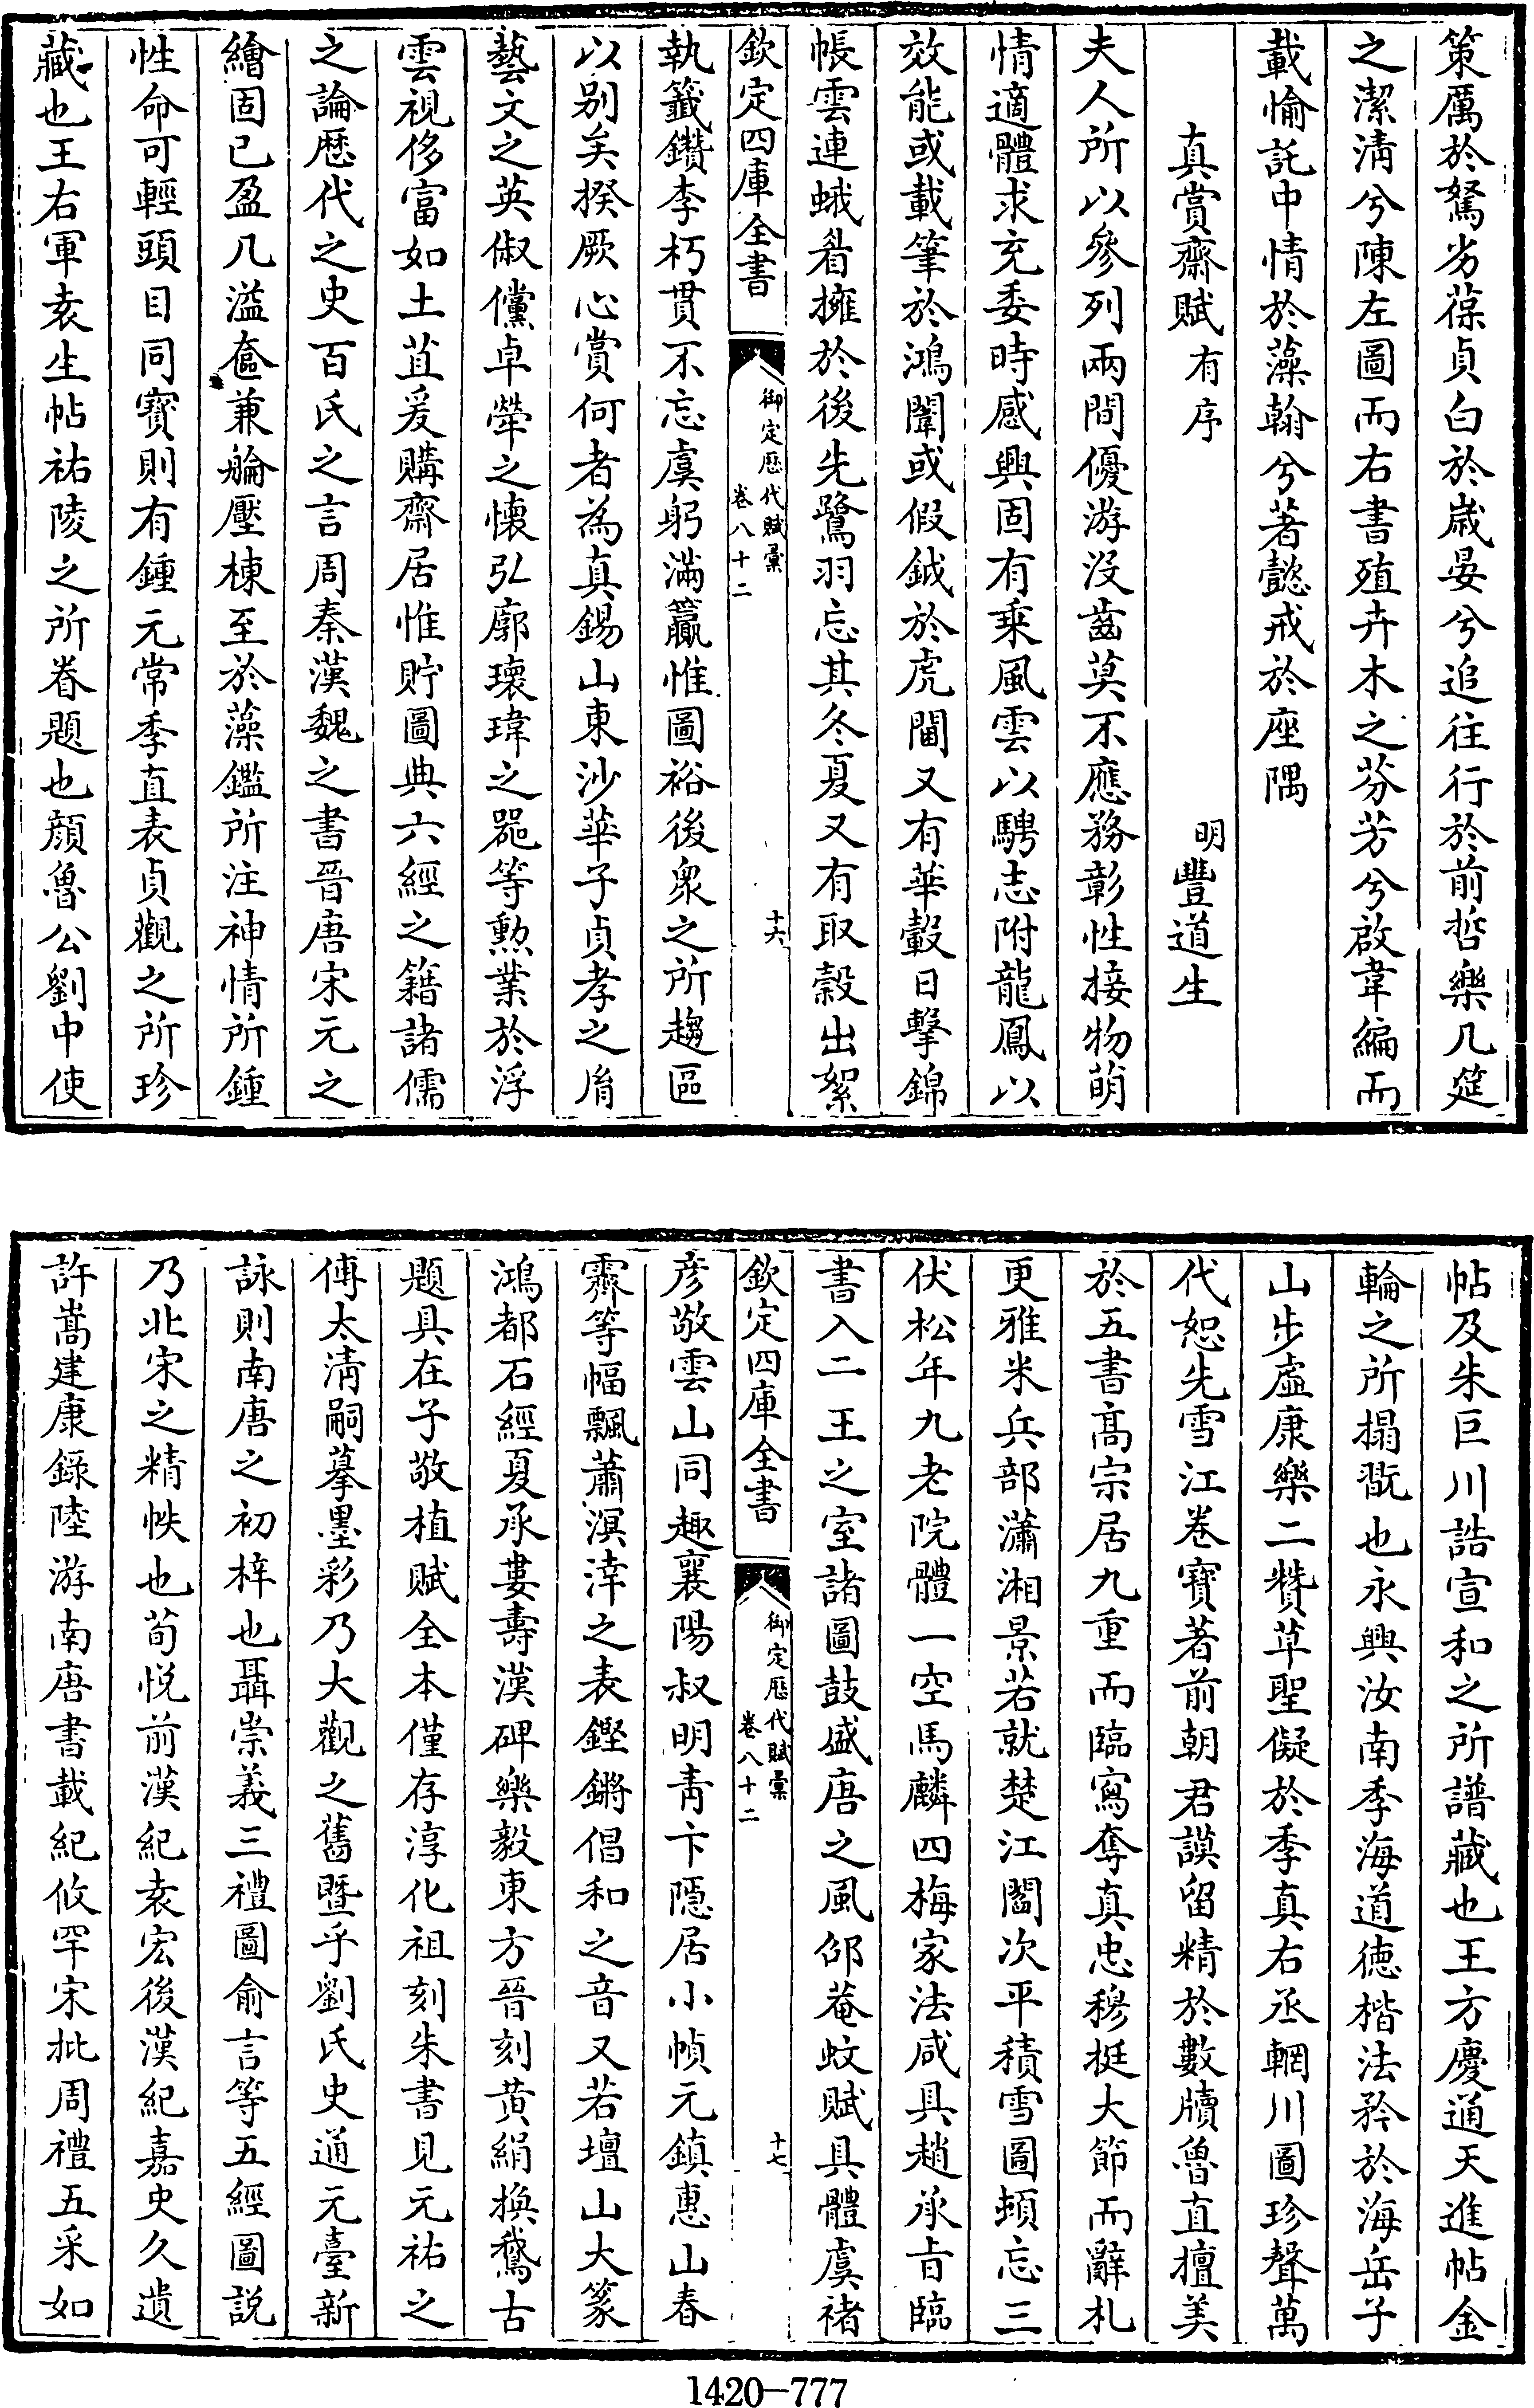 策厲於駑劣葆貞白於歲晏兮追往行於前哲樂几筵
之潔清兮陳左圖而右書殖卉木之芬芳兮啟韋編而
載愉託中情於藻翰兮著懿戒於座隅
真賞齋賦有序
明豐道生
夫人所以參列兩間優游沒齒莫不應務彰性接物萌
情適體求充委時感興固有乘風雲以騁志附龍鳳以
效能或載筆於鴻闈或假鉞於虎閫又有華轂日擊錦
帳雲連蛾眉擁於後先鷺羽忘其冬夏又有取穀出絮
欽定四庫全書
御定歷代賦彙
卷八十二
十六
執籤鑽李朽貫不忘虞躬滿籯惟圖裕後衆之所趨區
以别矣揆厥心賞何者為真錫山東沙華子貞孝之胄
藝文之英俶儻卓犖之懷弘廓瓌瑋之噐等勲業於浮
雲視侈富如土苴爰購齋居惟貯圖典六經之籍諸儒
之論歷代之史百氏之言周秦漢魏之書晉唐宋元之
繪固已盈几溢奩兼艫壓棟至於藻鑑所注神情所鍾
性命可輕頭目同寳則有鍾元常季直表貞觀之所珍
藏也王右軍袁生帖祐陵之所眷題也顔魯公劉中使
帖及朱巨川誥宣和之所譜藏也王方慶通天進帖金
輪之所搨翫也永興汝南季海道徳楷法矜於海岳子
山步虛康樂二贊草聖儗於季真右丞輞川圖珍聲萬
代恕先雪江卷寳著前朝君謨留精於數牘魯直擅美
於五書高宗居九重而臨寫奪真忠穆挺大節而辭札
更雅米兵部瀟湘景若就楚江閻次平積雪圖頓忘三
伏松年九老院體一空馬麟四梅家法咸具趙承㫖臨
書入二王之室諸圖鼓盛唐之風邵菴蚊賦具體虞褚
欽定四庫全書
御定歷代賦彙
卷八十二
十七
彦敬雲山同趣襄陽叔明青卞隠居小幀元鎮惠山春
霽等幅飄蕭溟涬之表鏗鏘倡和之音又若壇山大篆
鴻都石經夏承婁壽漢碑樂毅東方晉刻黄絹換鵞古
題具在子敬植賦全本僅存淳化祖刻朱書見元祐之
傅太清嗣摹墨彩乃大觀之舊暨乎劉氏史通元臺新
詠則南唐之初梓也聶崇義三禮圖俞言等五經圖説
乃北宋之精帙也荀悦前漢紀袁宏後漢紀嘉史久遺
許嵩建康錄陸游南唐書載紀攸罕宋批周禮五采如
1420-777